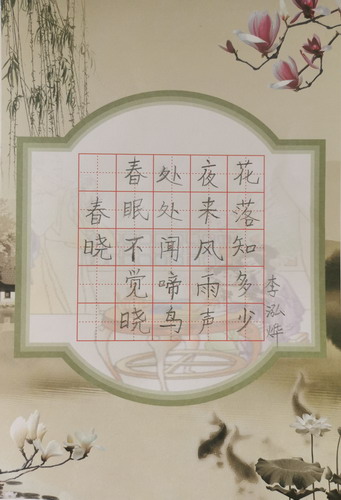 春晓
春眠不觉晓
处处闻啼鸟
夜来风雨声
花落知多少
李泓烨